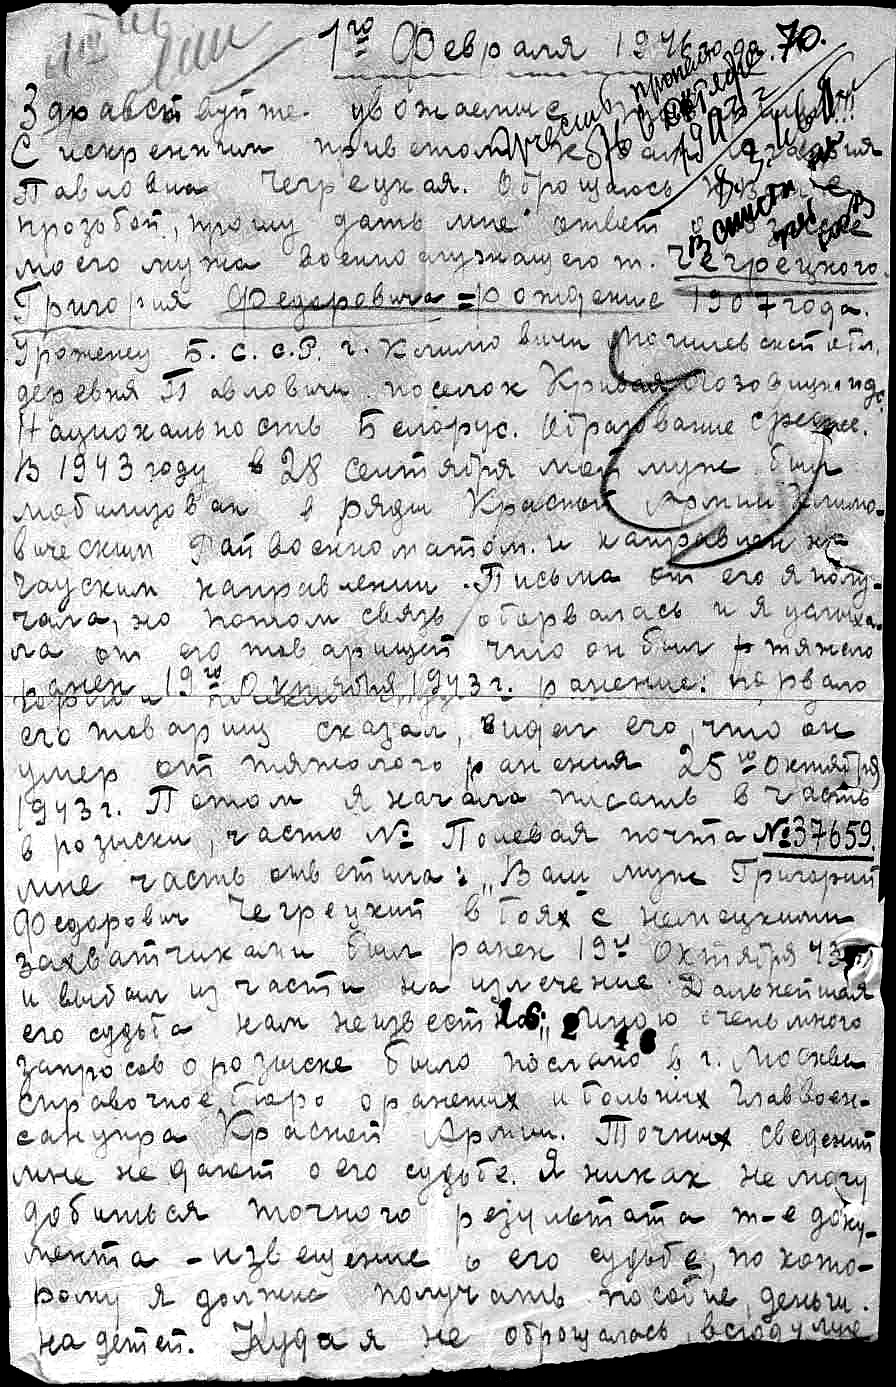 1го Февраля 1946 года. 70.
Здравствуйте уважаемые
С искренним приветом к Вам
Павловна Чегрецкая. Обращаюсь к
прозьбой, прошу дать мне ответ о
моего мужа военнослужащего т. Чегрецкого
Григория Федоровича = рождение 1907 года.
Уроженец Б.С.С.Р. г. Климовичи Могилевской обл.
деревня Павловичи поселок Кривая
Национальность Белорус. Образование среднее.
В 1943 году в 28 сентября мой муж был
мобилизован в ряды Красной Армии Климо-
вическим Райвоенкоматом. и направлен на
Чауским направлении. Письма от его я полу-
чала, но потом связь оборвалась и я услыха-
ла от его товарищей что он был тяжело
ранен 19го Октября 1943 г. ранение: порвало
его товарищ сказал, видел его, что он
умер от тяжолого ранения 25го октября
1943 г. Потом я начала писать в часть
в розыски, часть № Полевая почта №37659.
мне часть ответила: „Ваш муж Григорий
Федорович Чегрецкий в боях с немецкими
захватчиками был ранен 19го Октября 43 г
и выбыл из части на излечение. Дальнейшая
его судьба нам неизвестна" мною очень много
16 2 46
запросов о розыске было послано в г. Москва
справочное бюро о раненых и больных Главвоен-
санупра Красной Армии. Точных сведений
мне не дают о его судьбе. Я никак не могу
добиться точного результата т-е доку-
мента - извещение о его судьбе, по кото-
рому я должна получать пособие, деньги.
на детей. Куда я не обращалась, всюду мне
Пропал
в октябре
1943 г